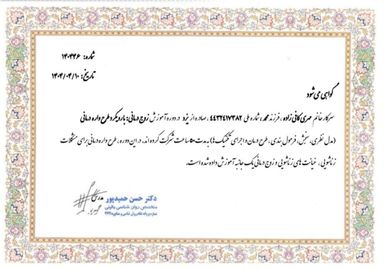 شماره: ۱۴۰۳۴۶
تاریخ: ۱۴۰۴/۰۴/۱۰
گواهی می شود
سرکار خانم فرزند محمد، شماره ملی ۴۴۳۲۴۱۷۳۸۲ صادره از یزد در دوره آموزش زوج درمانی: با رویکرد طرحواره درمانی
(مدل نظری، سنجش، فرمول بندی، طرح درمان و اجرای تکنیک ها) به مدت ساعت شرکت کرده اند. در این دوره، طرحواره درمانی برای مشکلات
زناشویی، خیانت های زناشویی و زوج درمانی یک جانبه آموزش داده شده است.
دکتر حسن حمیدپور
متخصص روان شناسی بالینی